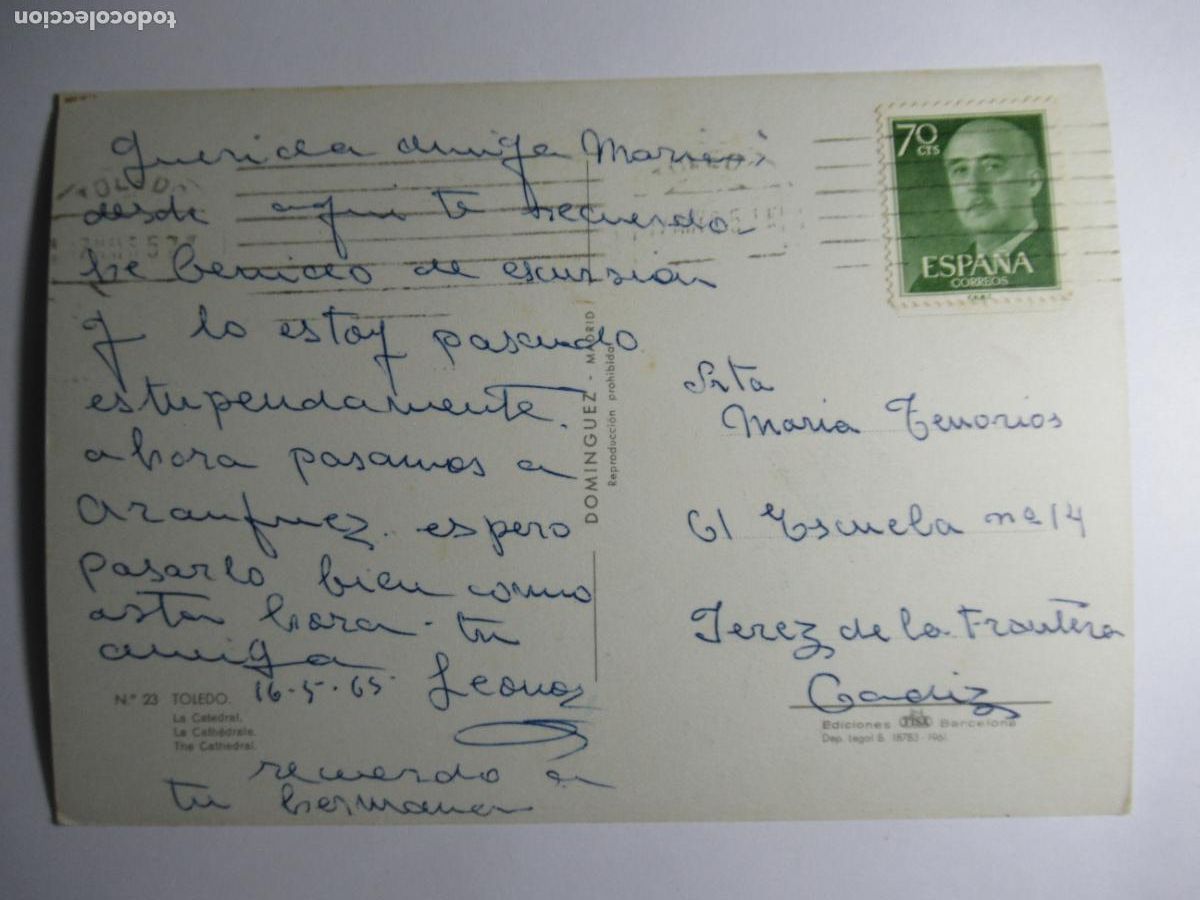 todocoleccion
Querida amiga
desde aqui te recuerdo
he benido de escursion
y lo estoy pasando
estupendamente.
ahora pasamos a
Aranfuez. espero
pasarlo bien como
asta hora. tu
amiga
16-5-65 Leonor
recuerdo a
tu hermana
Nº 23 TOLEDO.
La Catedral.
La Cathédrale.
The Cathedral.
DOMINGUEZ - MADRID
Reproducción prohibida
70
CTS
ESPAÑA
CORREOS
Srta
Maria Tenorios
Cl Escuela nº 14
Jerez de la Frontera
Cadiz
Ediciones FISA Barcelona
Dep. Legal B. 18783-1961